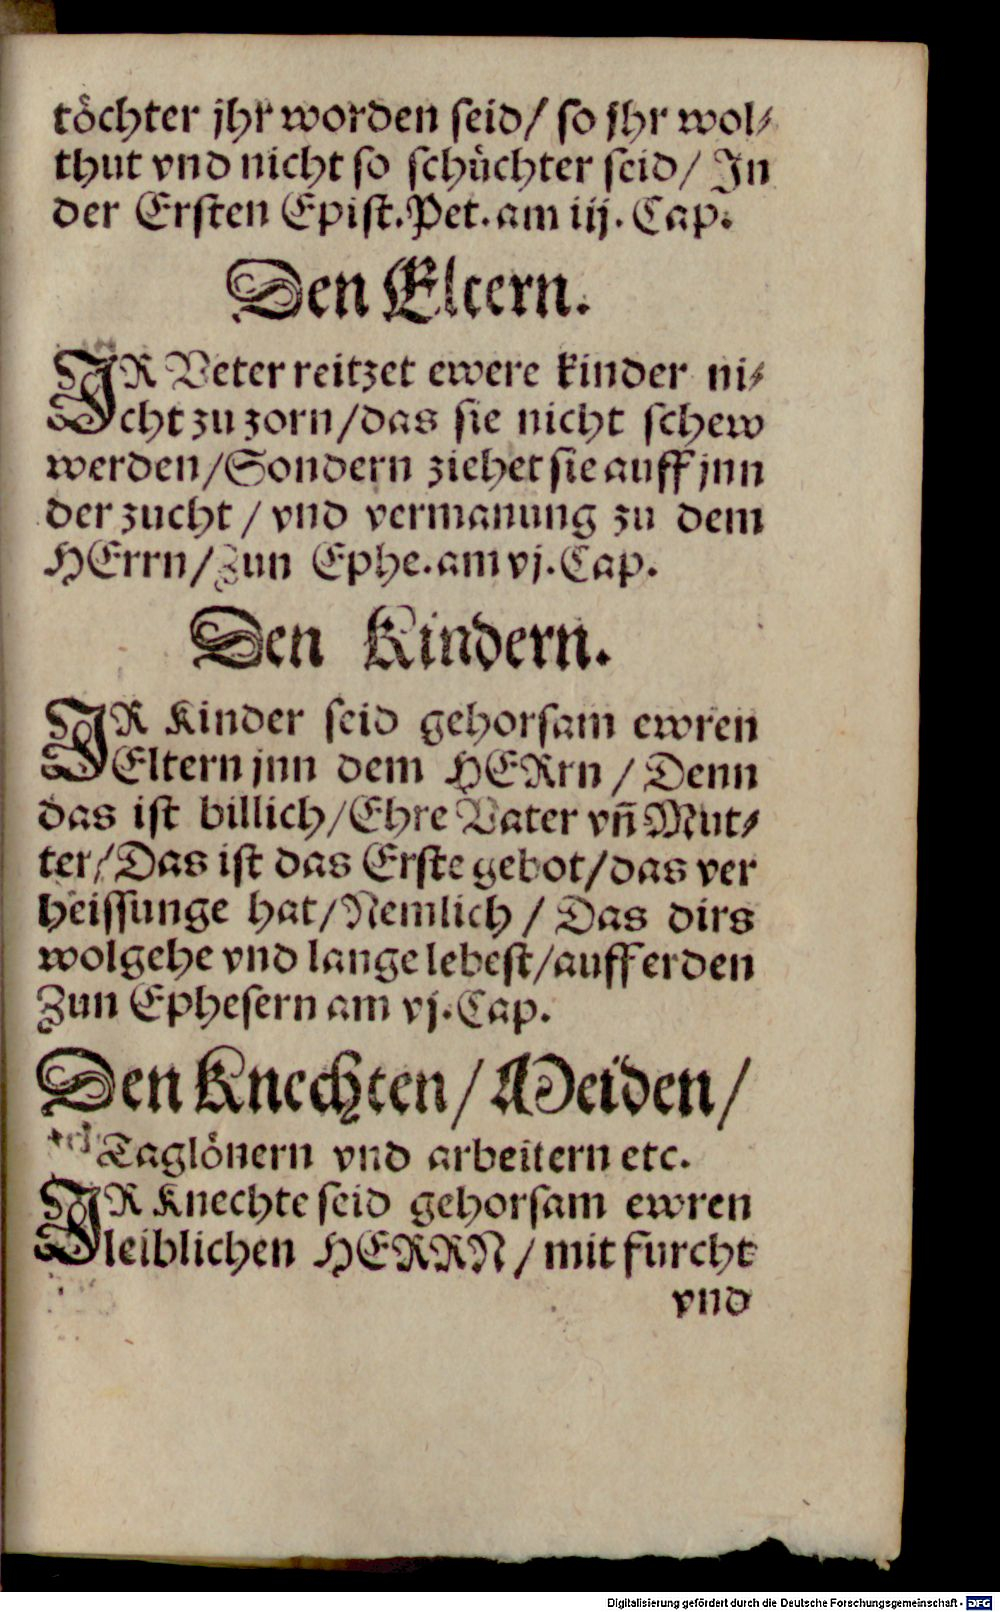 töchter jhr worden seid/ so jhr wol⸗
thut vnd nicht so schüchter seid/ In
der Ersten Epist. Pet. am iij. Cap.
Den Eltern.
IR Veter reitzet ewere kinder ni⸗
cht zu zorn/das sie nicht schew
werden/Sondern ziehet sie auff jnn
der zucht / vnd vermanung zu dem
HErrn/ Zun Ephe. am vj. Cap.
Den Kindern.
IR Kinder seid gehorsam ewren
Eltern jnn dem HERrn / Denn
das ist billich/Ehre Vater vñ Mut⸗
ter/Das ist das Erste gebot/das ver
heissunge hat/Nemlich / Das dirs
wolgehe vnd lange lebest/auff erden
Zun Ephesern am vj. Cap.
Den Knechten/ Meiden/
Taglönern vnd arbeitern etc.
IR Knechte seid gehorsam ewren
leiblichen HERRN / mit furcht
vnd
Digitalisierung gefördert durch die Deutsche Forschungsgemeinschaft - DFG